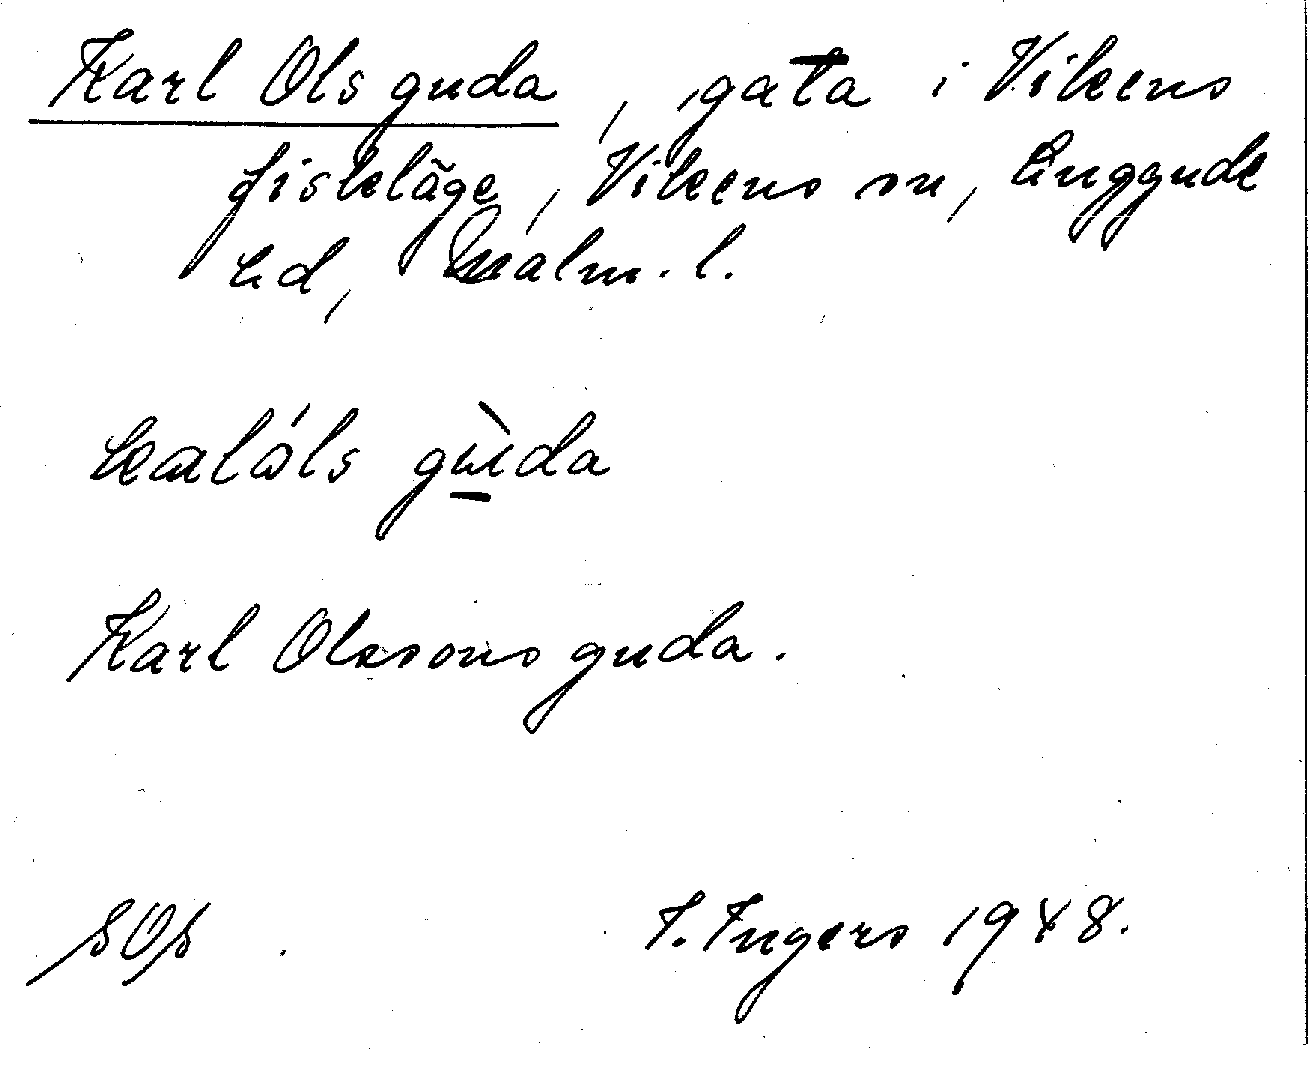 Karl Ols guda, gata i Vikens
fiskeläge, Vikens sn, Luggude
hd, Malm. l.
kalóls gùda
Karl Olssons guda.
I. Ingers 1948.